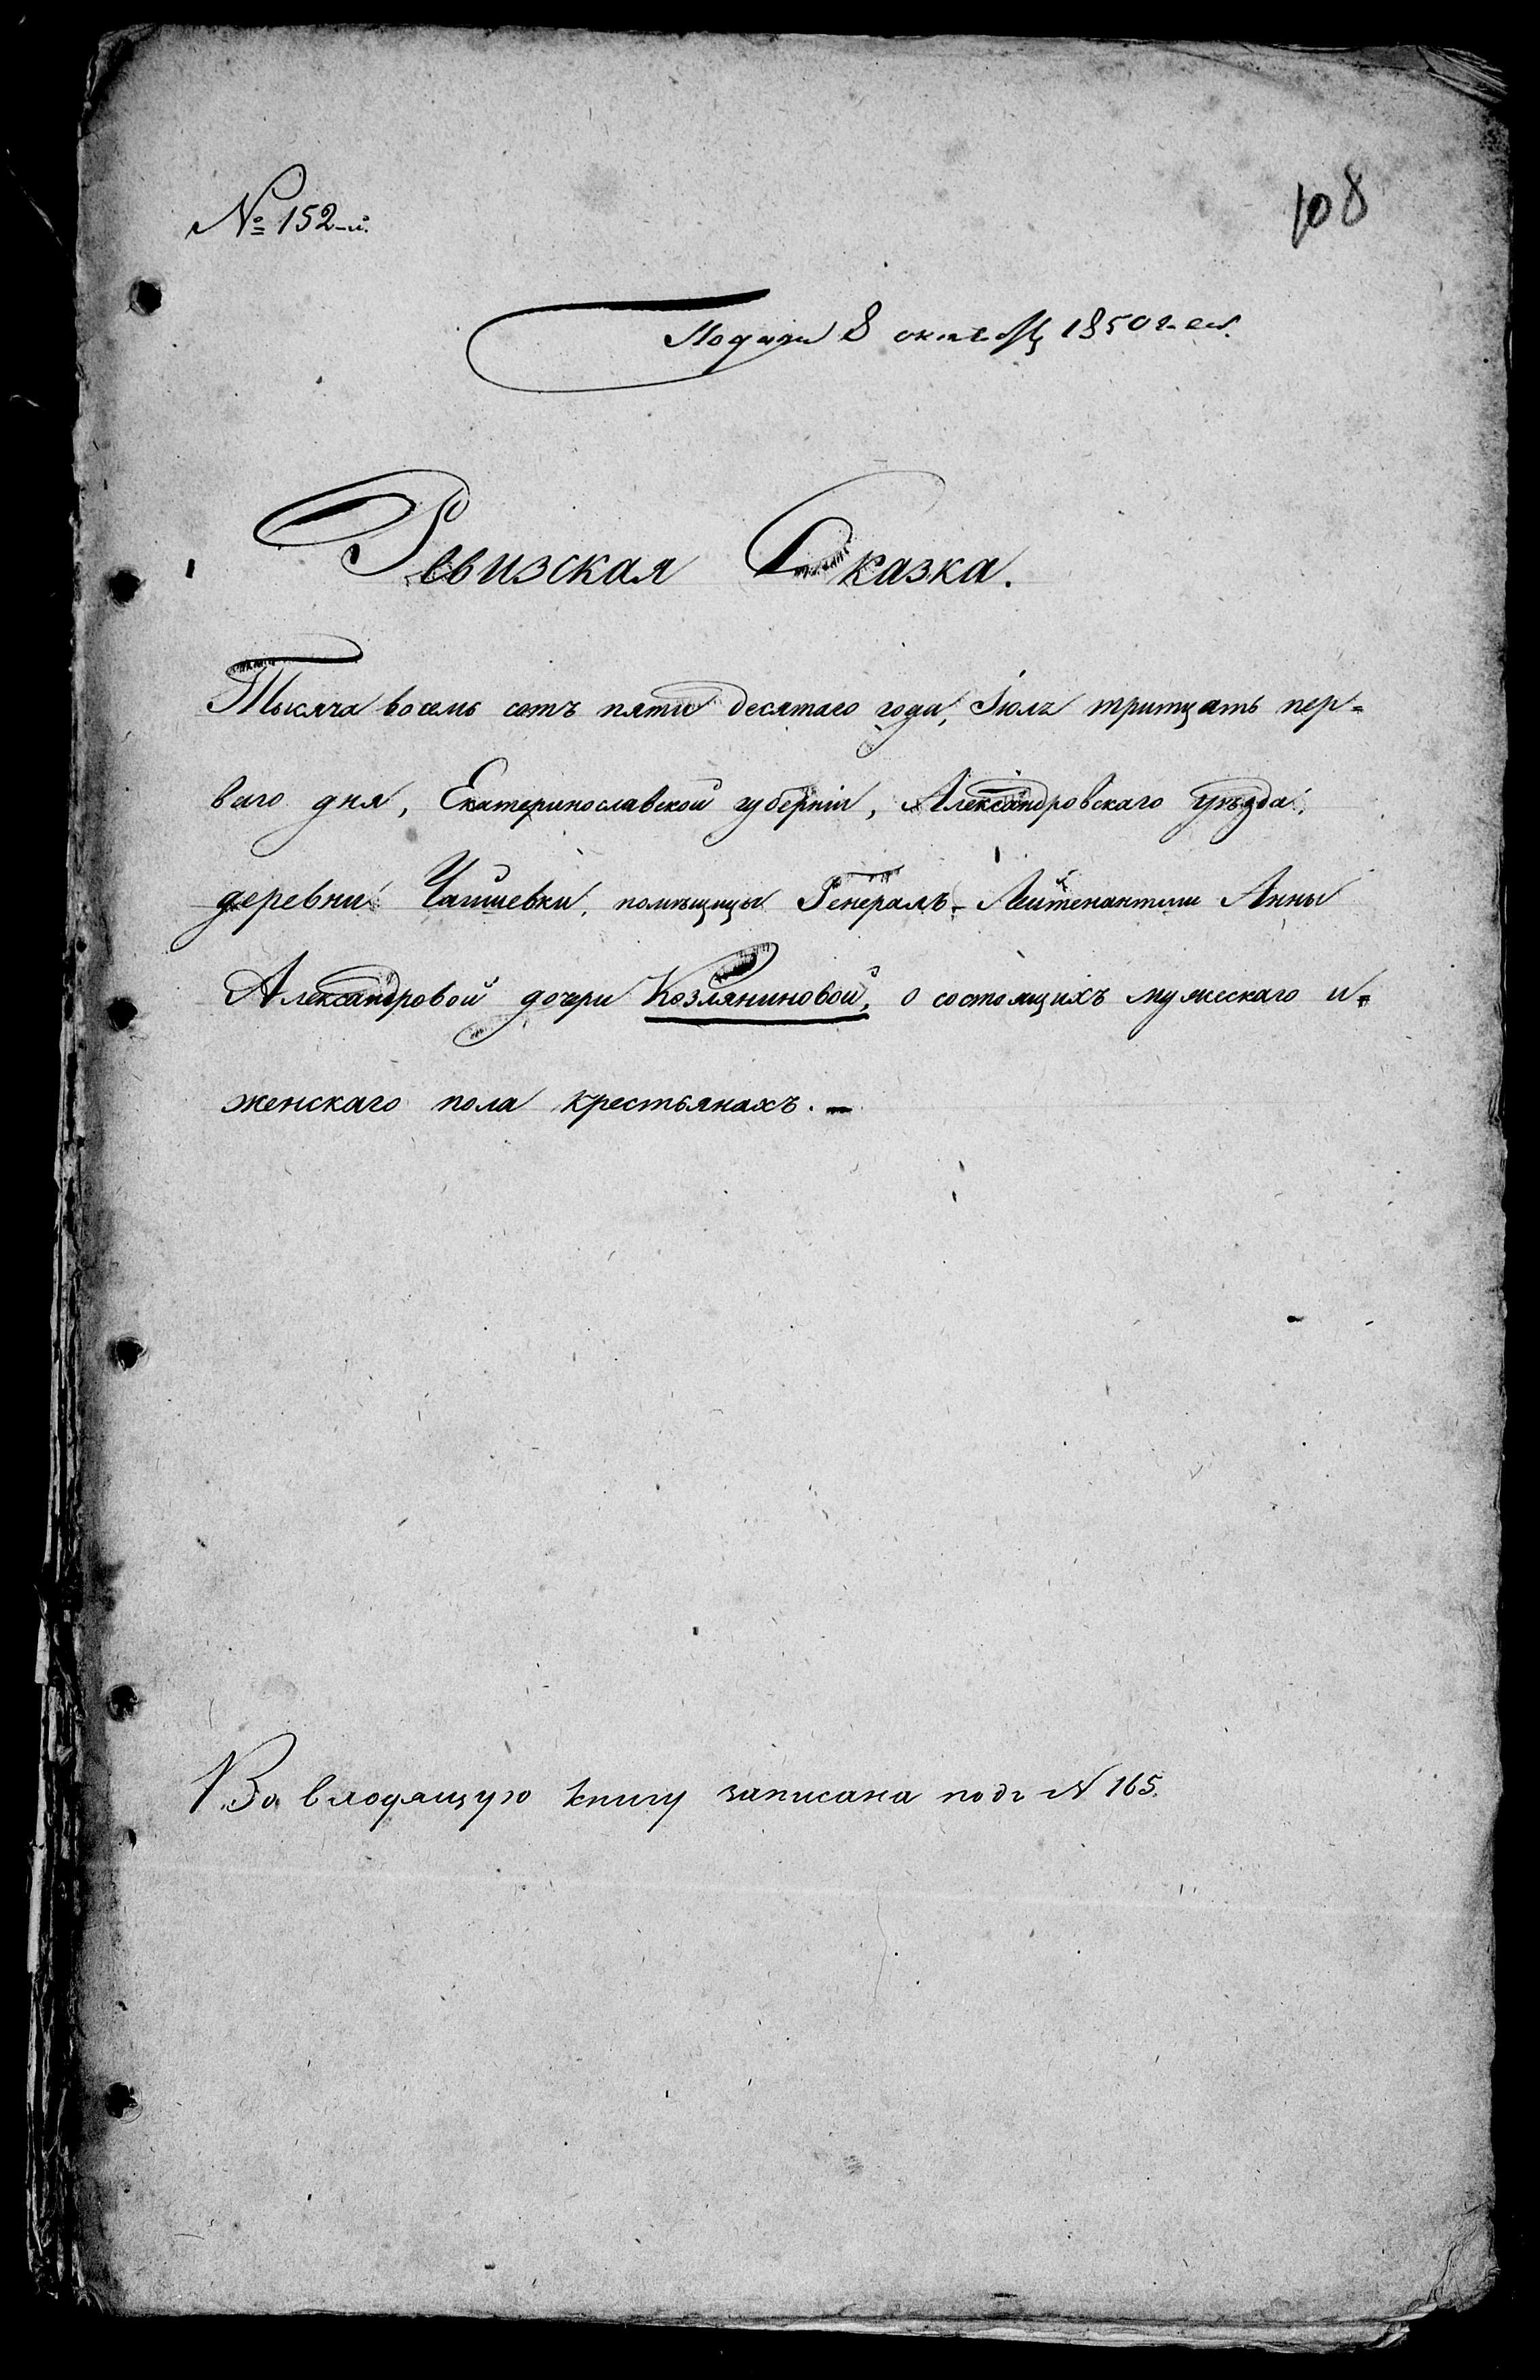 № 152-й.
108
8 1850
Ревизская Сказка.
Тысяча восемь сотъ пяти десятаго года, Іюля тритцать пер=
ваго дня, Екатеринославской губерніи, Александровскаго уѣзда,
деревни помѣщицы Генералъ-Лейтенантши Анны
Александровой дочери Козляниновой, о состоящихъ мужескаго и=
женскаго пола крестьянахъ. —
Во входящую книгу записана подъ № 165.